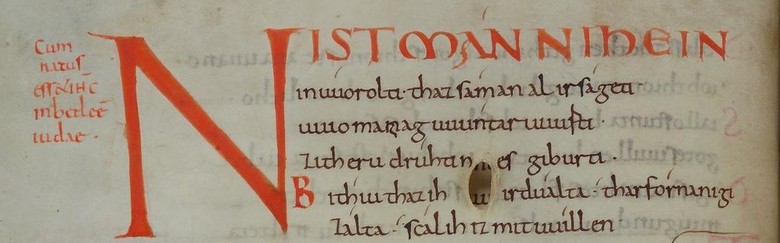 Cum
natus
esset ihc
in betleē
iudae ·
NIST MAN NIHEIN
in uuorolti · thaz sáman al irságeti
uuuo manag uuuntar uuurti ·
zi theru druhtin es giburti ·
Bithiu thaz ih irduálta · thar forna ni gi
zálta · scál ih iz mit uuíllen